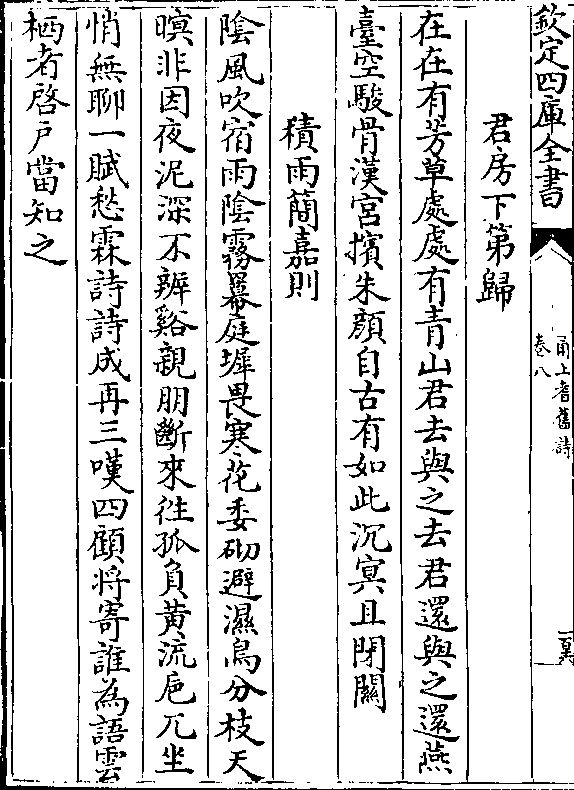 欽定四庫全書
甬上耆舊詩
卷八
君房下第歸
在在有芳草處處有青山君去與之去君還與之還燕
臺空駿骨漢宮擯朱顔自古有如此沉冥且閉關
積雨簡嘉則
陰風吹宿雨陰霧羃庭墀畏寒花委砌避濕鳥分枝天
暝非因夜泥深不辨谿親朋斷來徃孤負黄流巵兀坐
悄無聊一賦愁霖詩詩成再三嘆四顧将寄誰為語雲
栖者啓戶當知之